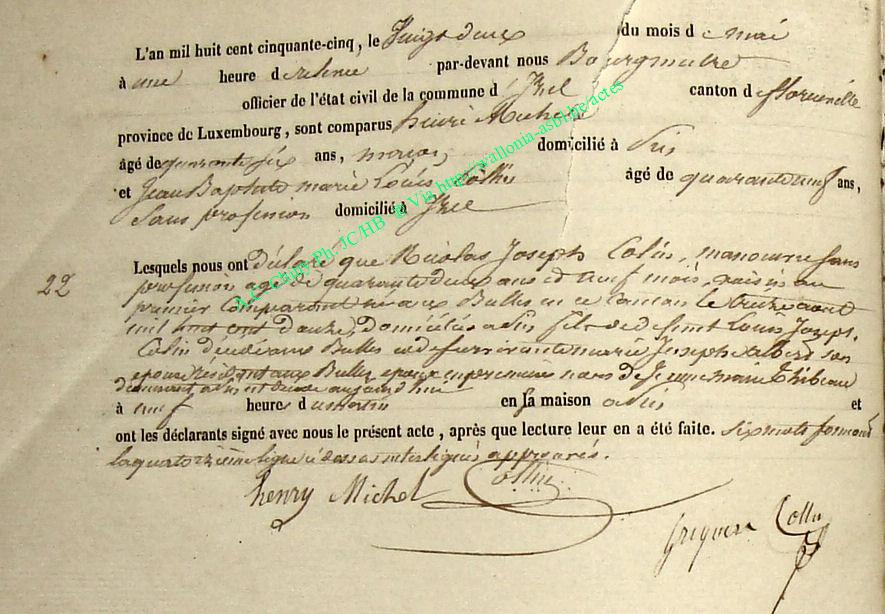 L'an mil huit cent cinquante-cinq, le Vingt deux du mois d e mai
à une heure d e relevée par-devant nous Bourgmestre
officier de l'état civil de la commune d' Izel canton d e florenville
province de Luxembourg, sont comparus henri Michel
âgé de quarante six ans, maçon, domicilié à Pin
et Jean Baptiste marie Louis Collin âgé de quarante neuf ans,
Sans profession domicilié à Izel
22
Lesquels nous ont déclaré que Nicolas Joseph Colin, manoeuvre sans
profession agé de quarante deux ans et neuf mois, voisin au
premier Comparant né aux Bulles en ce Canton le treize aout
mil huit cent douze, Domicilié à Pin fils de defunt Louis Joseph
Colin décédé aux Bulles et de survivante marie Joseph son
épouse résidant aux Bulles, époux en noces de Jeanne marie Thibeau
est décédé aujourd'hui
à neuf heures d u matin en sa maison à Pin et
ont les déclarants signé avec nous le présent acte, après que lecture leur en a été faite. Six mots formant
la quatorzième ligne ci dessus interlignés approuvés.
henry Michel Collin
Collin
A.E. Cliché Ph. JC/HB © Via http://wallonia-asbl.be/actes